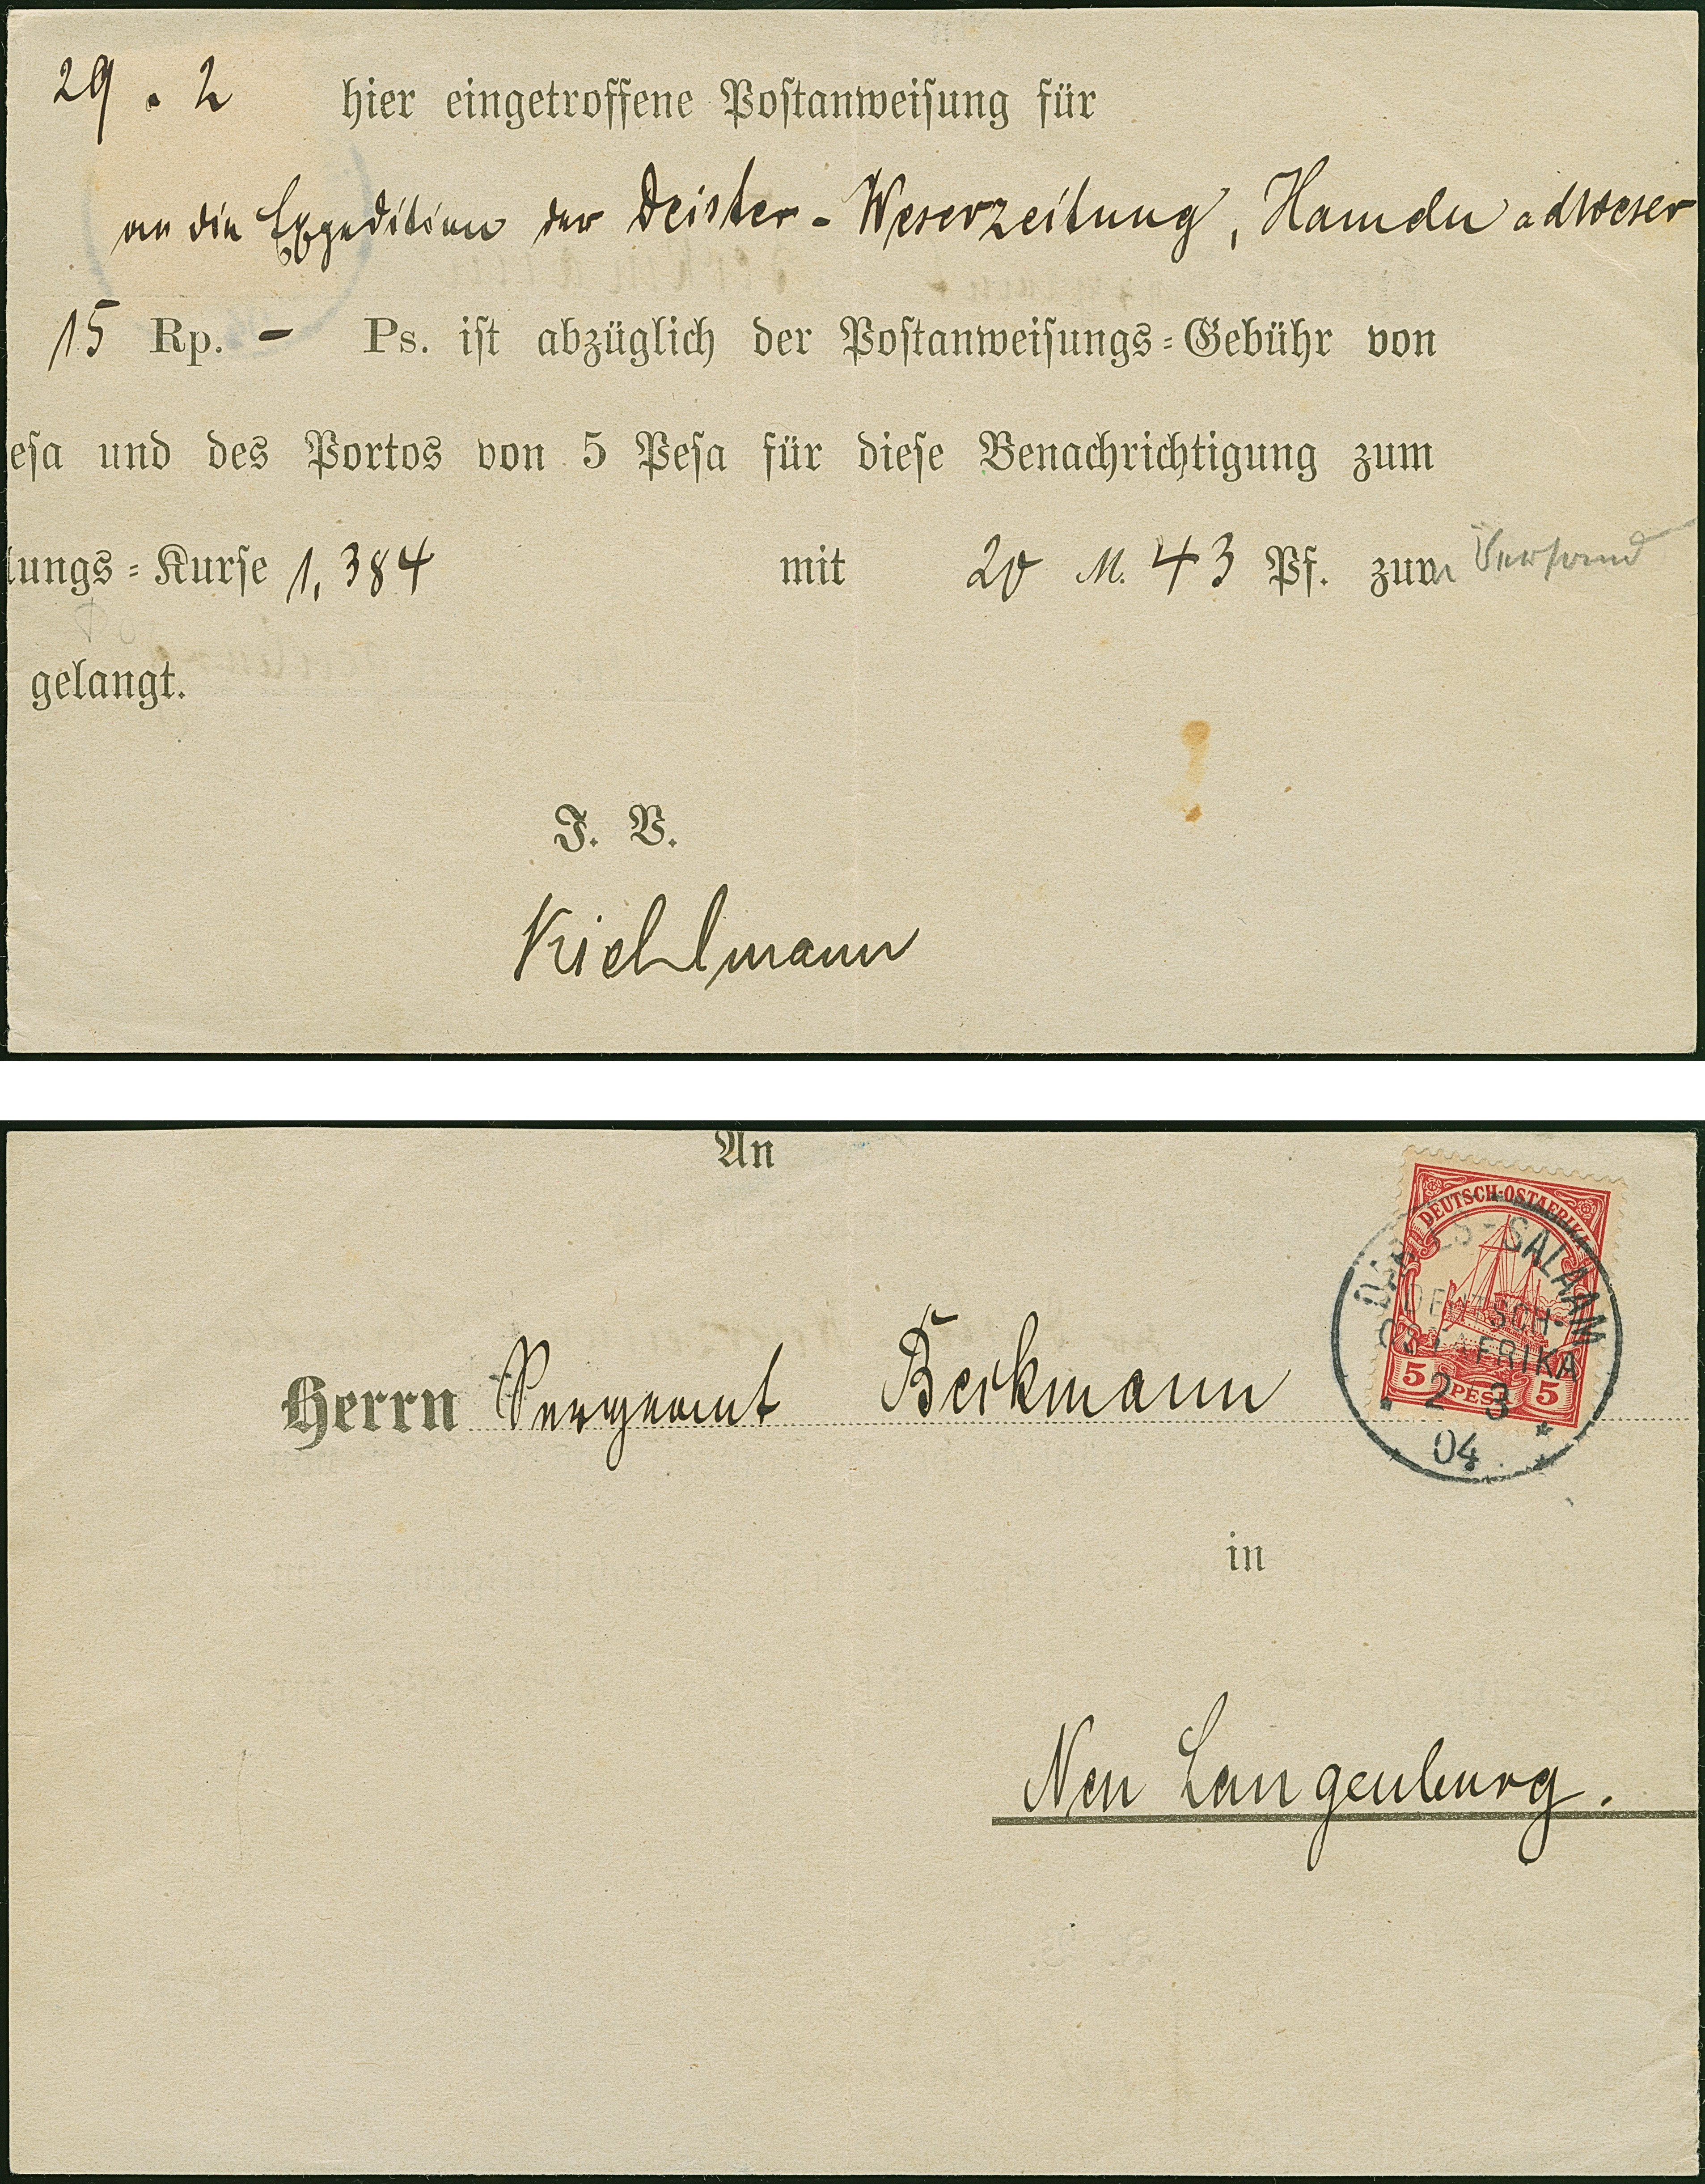 29. 2 hier eingetroffene Postanweisung für
an die Expedition der Deister-Weserzeitung, Hameln a d Weser
15 Rp. – Ps. ist abzüglich der Postanweisungs-Gebühr von
esa und des Portos von 5 Pesa für diese Benachrichtigung zum
lungs-Kurse 1,384 mit 20 M. 43 Pf. zum Versand
gelangt.
J. V.
Kiehlmann
An
DEUTSCH-OSTAFRIKA
DAR-ES-SALAAM
DEUTSCH-
OSTAFRIKA
5 PESA 5
2 3
04
Herrn Sergeant Berkmann
in
Neu Langenburg.